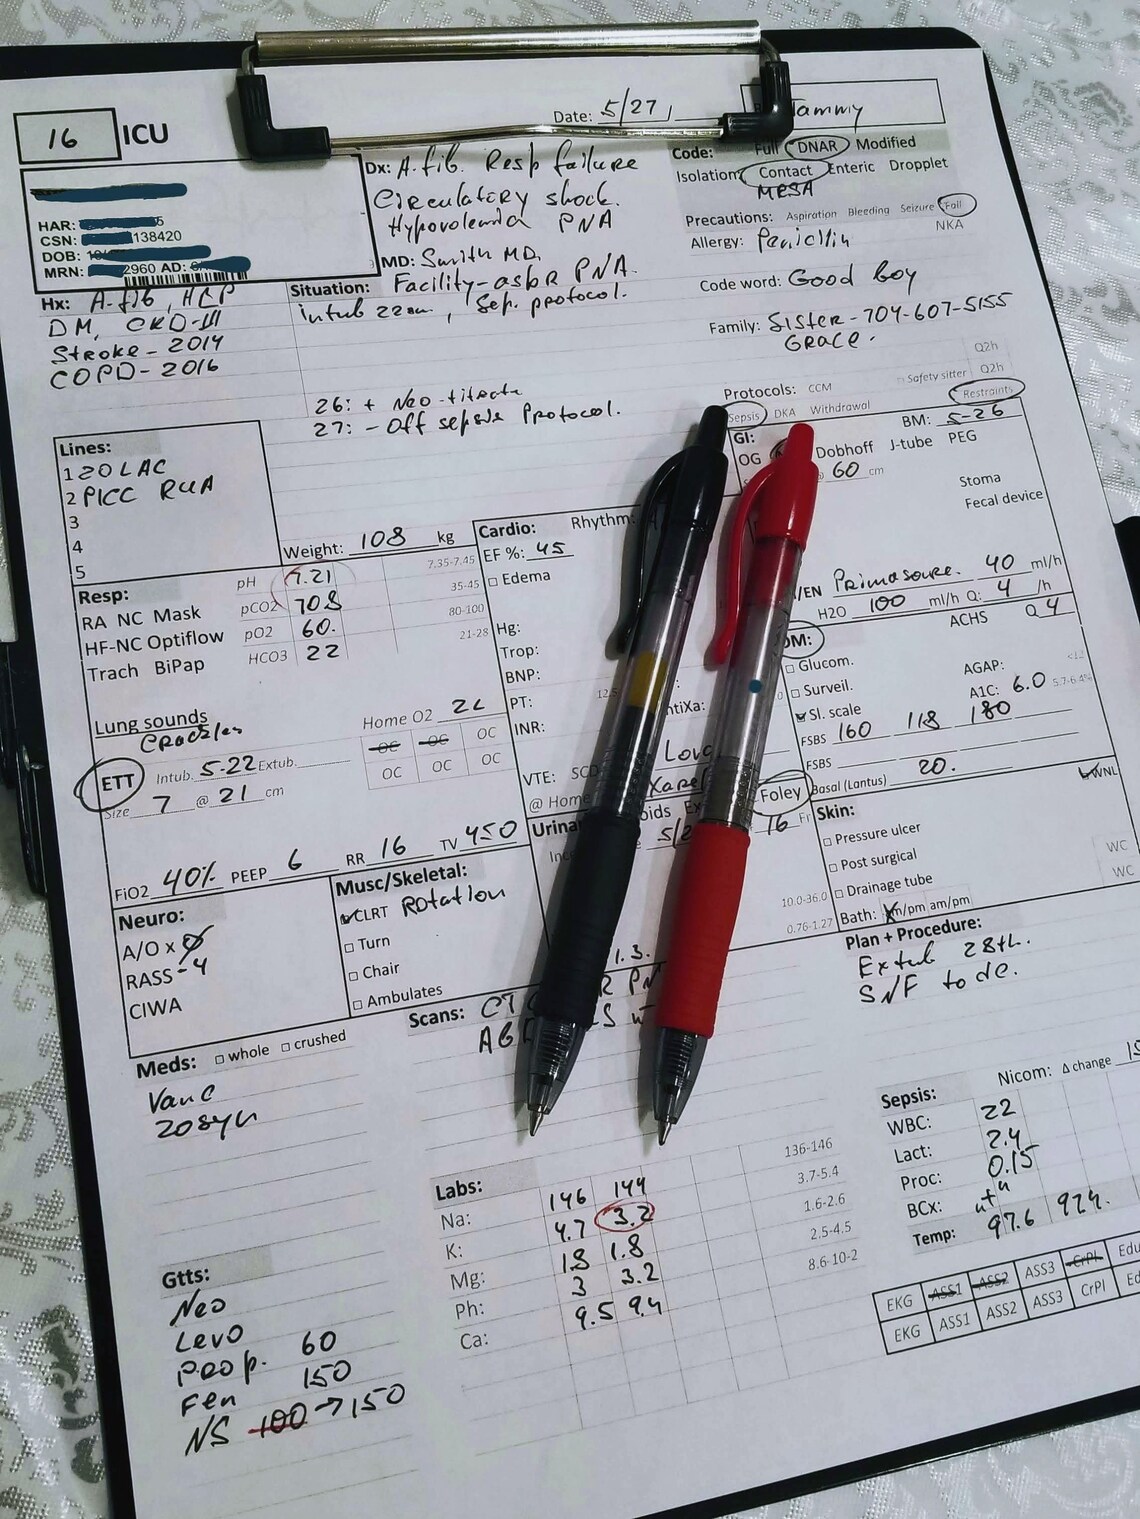 16 ICU
Date: 5/27/
Tammy
HAR: 5
CSN: 138420
DOB:
MRN: 2960 AD:
Dx: A.fib. Resp failure
Circulatory shock.
Hypovolemia PNA
MD: Smith MD.
Code: Full DNAR Modified
Isolation: Contact Enteric Dropplet
MRSA
Precautions: Aspiration Bleeding Seizure Fall
Allergy: Penicillin NKA
Code word: Good Boy
Family: Sister-704-607-5155
Grace.
Hx: A-fib,
DM, CKD-III
Stroke-2014
COPD-2016
Situation: Facility- PNA.
intub 22 , Sep. protocol.
26: + Neo-titrate
27: - Off sepsis Protocol.
Q2h
Safety sitter Q2h
Protocols: CCM Restraints
Sepsis DKA Withdrawal
Lines:
1 20 LAC
2 PICC RUA
3
4
5
GI: BM: 5-26
OG Dobhoff J-tube PEG
@ 60 cm
Stoma
Fecal device
/EN 40 ml/h
H2O 100 ml/h Q: 4 /h
Weight: 108 kg
Resp:
RA NC Mask
HF-NC Optiflow
Trach BiPap
pH 7.21 7.35-7.45
pCO2 708 35-45
pO2 60. 80-100
HCO3 22 21-28
Lung sounds
Crackles
Home O2 2L
OC OC OC
OC OC OC
ETT Intub. 5-22 Extub.
Size 7 @ 21 cm
FiO2 40% PEEP 6 RR 16 TV 450
Cardio: Rhythm: A
EF %: 45
Edema
Hg:
Trop:
BNP:
PT: 12.5
INR:
VTE: SCD
@ Home
DM: ACHS Q4
Glucom.
Surveil. AGAP: <12
Sl. scale A1C: 6.0 5.7-6.4%
FSBS 160 118 180
FSBS
Basal (Lantus) 20.
Foley
16 Fr
10.0-36.0
0.76-1.27
1.3.
Skin: WNL
Pressure ulcer
Post surgical WC
Drainage tube WC
Bath: am/pm am/pm
Neuro:
A/O x 0
RASS -4
CIWA
Musc/Skeletal:
CLRT Rotation
Turn
Chair
Ambulates
Scans: CT
Plan + Procedure:
Extub 28th.
SNF to dc.
Meds: whole crushed
Vanc
zosyn
Gtts:
Neo
Levo
Prop. 60
Fen 150
NS 100 → 150
Labs:
Na: 146 144 136-146
K: 4.7 3.2 3.7-5.4
Mg: 1.8 1.8 1.6-2.6
Ph: 3 3.2 2.5-4.5
Ca: 9.5 9.4 8.6-10-2
Sepsis: Nicom: Δ change
WBC: 22
Lact: 2.4
Proc: 0.15
BCx: "+"
Temp: 97.6
EKG ASS1 ASS2 ASS3 CrPl Edu
EKG ASS1 ASS2 ASS3 CrPl Ed